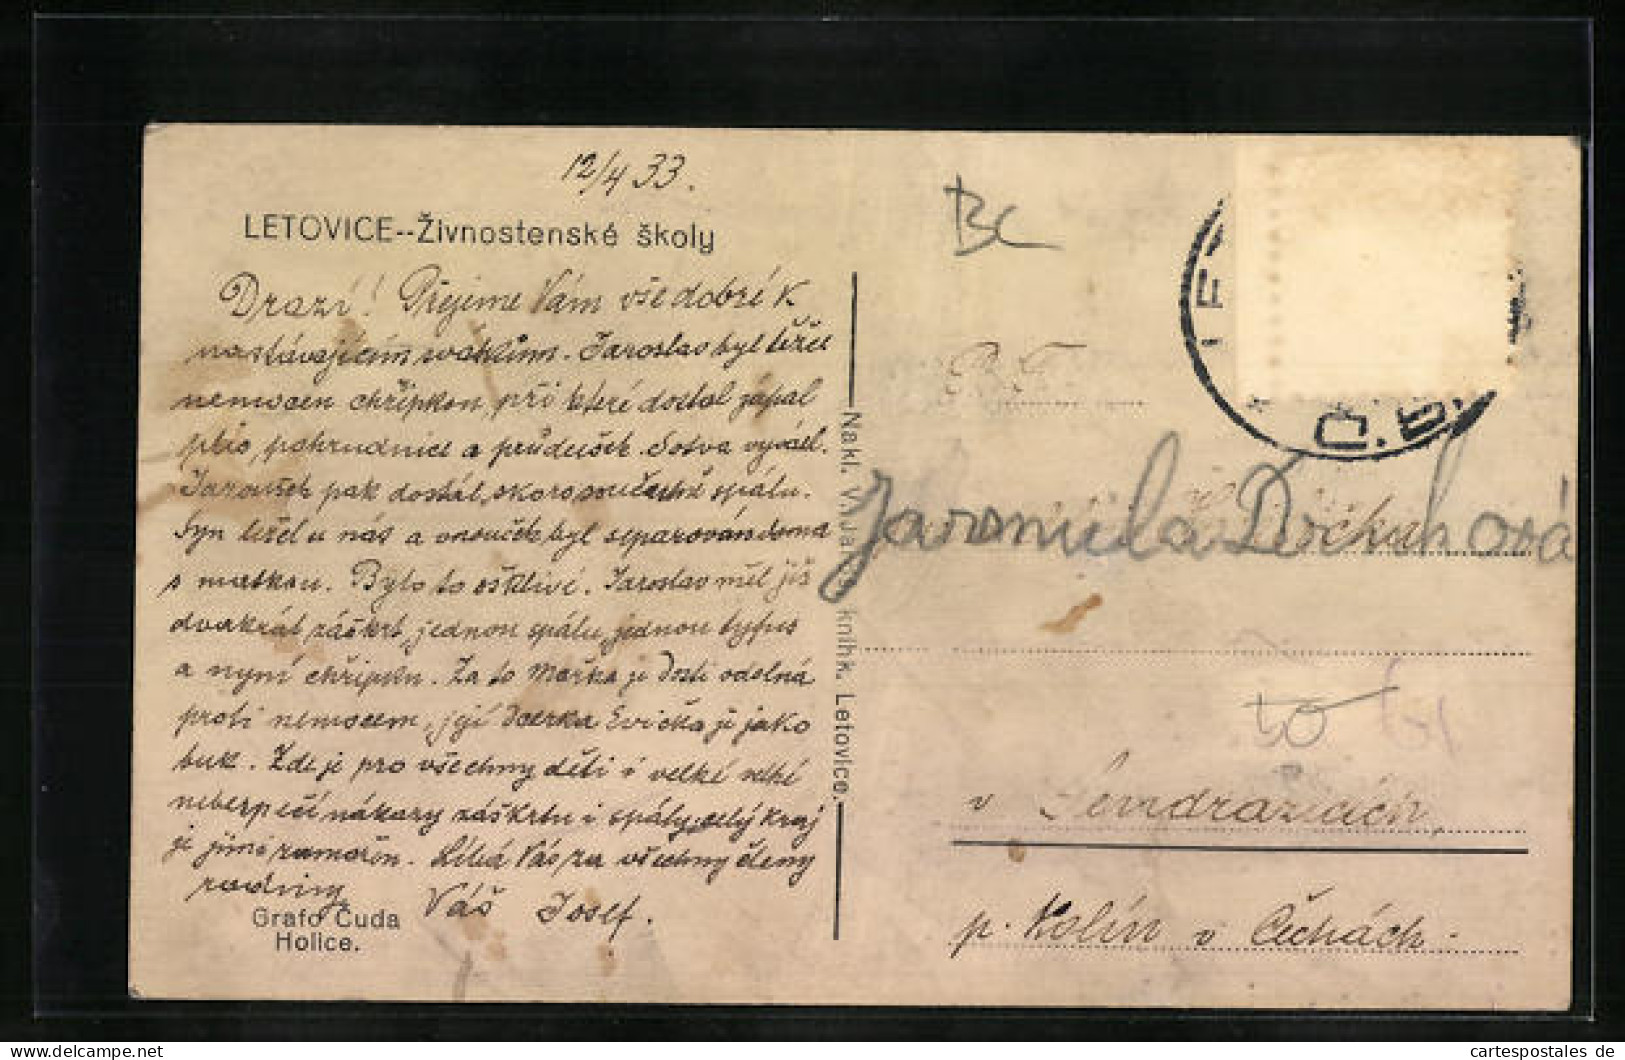 12/4 33.
LETOVICE--Živnostenské školy
Drazí! Přejeme Vám vše dobré k
nastávajícím svátkům. Jaroslav byl těžce
nemocen chřipkou, při které dostal zápal
plic, pohrudnice a průdušek. Sotva vyvázl.
Jaroušek pak dostal skoro současně spálu.
Syn ležel u nás a vnouček byl separován doma
s matkou. Bylo to ošklivé. Jaroslav měl již
dvakrát záškrt, jednou spálu, jednou tyfus
a nyní chřipku. Za to Mařka je dosti odolná
proti nemocem, její dcerka Evička je jako
buk. Zde je pro všechny děti i velké velké
nebezpečí nákazy záškrtu i spály, celý kraj
je jimi zamořen. Líbá Vás za všechny členy
rodiny Váš Josef.
Grafo Čuda
Holice.
Nakl. knihk. Letovice.
BC
Č.S.
Jaromila
v Sendražicích
p. Kolín v Čechách.
cartespostales de